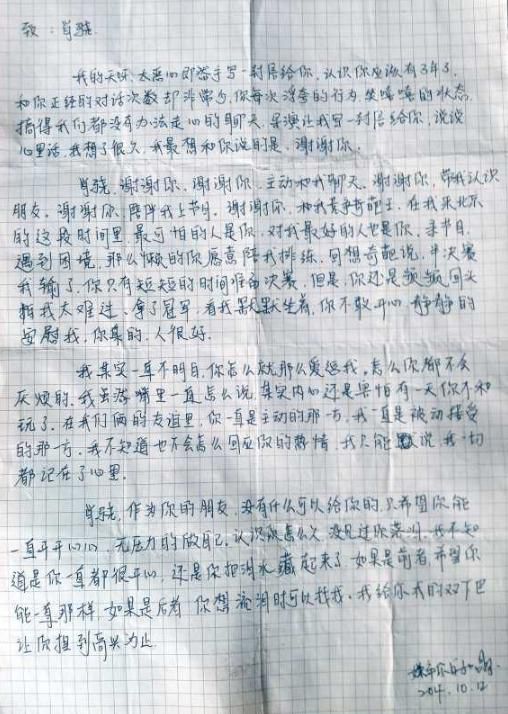 致：肖骁
我的天呀，太恶心即将手写一封信给你，认识你应该有3年了，
和你正经的对话次数却非常少，你每次浮夸的行为，笑嘻嘻的状态
搞得我们都没有办法走心的聊天，导演让我写一封信给你，说说
心里话，我想了很久，我最想和你说的是，谢谢你。
肖骁，谢谢你，谢谢你，主动和我聊天，谢谢你，带我认识
朋友，谢谢你，陪伴我上节目，谢谢你，和我竞争奇葩王，在我来北京
的这段时间里，最可怕的人是你，对我最好的人也是你，录节目
遇到困境，那么懒的你愿意陪我排练，回想奇葩说，半决赛
我输了，你只有短短的时间准备决赛，但是，你还是频频回头
怕我太难过，拿了冠军，看我默默坐着，你不敢开心，静静的
安慰我，你真的，人很好。
我其实一直不明白，你怎么就那么爱逗我，怎么你都不会
厌烦的，我虽然嘴里一直怎么说，其实内心还是害怕有一天你不和
玩了，在我们俩的友谊里，你一直是主动的那一方，我一直是被动接受
的那一方，我不知道也不会怎么回应你的热情，我只能说，我一切
都记在了心里。
肖骁，作为你的朋友，没有什么可以给你的，只希望你能
一直开开心心，无压力的做自己，认识你怎么久，没见过你哭，我不知
道是你一直都很开心，还是你把泪水藏起来了，如果是前者，希望你
能一直那样，如果是后者，你想流泪时可以找我，我给你我的双下巴
让你捏到高兴为止
10.12